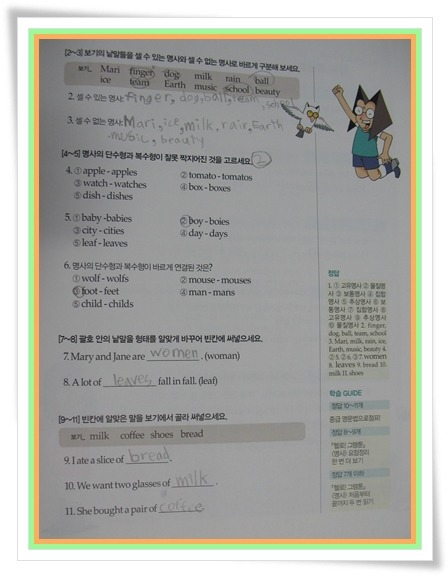 [2~3] 보기의 낱말들을 셀 수 있는 명사와 셀 수 없는 명사로 바르게 구분해 보세요.
보기. Mari finger dog milk rain ball
ice team Earth music school beauty
2. 셀 수 있는 명사: finger, dog, ball, team, school
3. 셀 수 없는 명사: Mari, ice, milk, rain, Earth
music, beauty
[4~5] 명사의 단수형과 복수형이 잘못 짝지어진 것을 고르세요. 2
4. ① apple - apples ② tomato - tomatos
③ watch - watches ④ box - boxes
⑤ dish - dishes
5. ① baby -babies ② boy - boies
③ city - cities ④ day - days
⑤ leaf - leaves
6. 명사의 단수형과 복수형이 바르게 연결된 것은?
① wolf - wolfs ② mouse - mouses
③ foot - feet ④ man - mans
⑤ child - childs
[7~8] 괄호 안의 낱말을 형태를 알맞게 바꾸어 빈칸에 써넣으세요.
7. Mary and Jane are women. (woman)
8. A lot of leaves fall in fall. (leaf)
[9~11] 빈칸에 알맞은 말을 보기에서 골라 써넣으세요.
보기. milk coffee shoes bread
9. I ate a slice of bread
10. We want two glasses of milk.
11. She bought a pair of coffee.
정답
1. ① 고유명사 ② 물질명
사 ③ 보통명사 ④ 집합
명사 ⑤ 추상명사 ⑥ 보
통명사 ⑦ 집합명사 ⑧
고유명사 ⑨ 추상명사
⑩ 물질명사 2. finger,
dog, ball, team, school
3. Mari, milk, rain, ice,
Earth, music, beauty 4.
② 5. ② 6. ③ 7. women
8. leaves 9. bread 10.
milk 11. shoes
학습 GUIDE
정답 10~11개
중급 영문법으로 점프!
정답 8~9개
『헬로! 그램툰』
〈명사〉 요점정리
한 번 더 보기
정답 7개 이하
『헬로! 그램툰』
〈명사〉 처음부터
끝까지 두 번 읽기